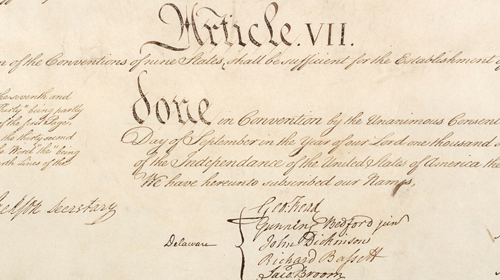 Article. VII.
of the Conventions of nine States, shall be sufficient for the Establishment of
the seventh and
Thirty" being partly
of the first Page,
the thirty second
Word "the" being
forty Lines of the
done in Convention by the Unanimous Consent
Day of September in the Year of our Lord one thousand
of the Independance of the United States of America the
We have hereunto subscribed our Names,
Secretary
Delaware
Geo: Read
Gunning Bedford jun
John Dickinson
Richard Bassett
Jaco: Broom